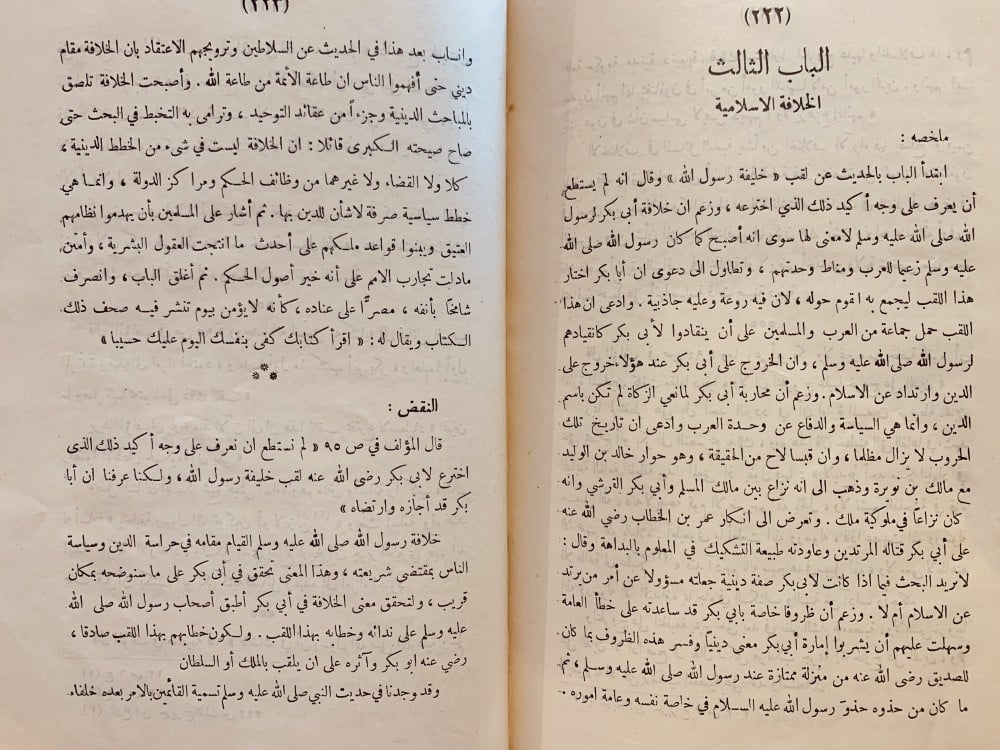 (٢٢٢)
الباب الثالث
الخلافة الاسلامية
ملخصه :
ابتدأ الباب بالحديث عن لقب « خليفة رسول الله » وقال انه لم يستطع
أن يعرف على وجه أكيد ذلك الذي اخترعه ، وزعم ان خلافة أبي بكر لرسول
الله صلى الله عليه وسلم لامعنى لها سوى انه أصبح كما كان رسول الله صلى الله
عليه وسلم زعيما للعرب ومناط وحدتهم ، وتطاول الى دعوى ان أبا بكر اختار
هذا اللقب ليجمع به القوم حوله ، لان فيه روعة وعليه جاذبية . وادعى ان هذا
اللقب حمل جماعة من العرب والمسلمين على أن ينقادوا لأبي بكر كانقيادهم
لرسول الله صلى الله عليه وسلم ، وان الخروج على أبي بكر عند هؤلاء خروج على
الدين وارتداد عن الاسلام . وزعم أن محاربة أبي بكر لمانعي الزكاة لم تكن باسم
الدين ، وانما هي السياسة والدفاع عن وحدة العرب وادعى ان تاريخ تلك
الحروب لا يزال مظلما ، وان قبسا لاح من الحقيقة ، وهو حوار خالد بن الوليد
مع مالك بن نويرة وذهب الى انه نزاع بين مالك المسلم وأبي بكر القرشي وانه
كان نزاعاً في ملوكية ملك . وتعرض الى انكار عمر بن الخطاب رضي الله عنه
على أبي بكر قتاله المرتدين وعاودته طبيعة التشكيك في المعلوم بالبداهة وقال :
لانريد البحث فيما اذا كانت لابي بكر صفة دينية جعلته مسؤولا عن أمر من يرتد
عن الاسلام أم لا . وزعم أن ظروفا خاصة بابي بكر قد ساعدته على خطأ العامة
وسهلت عليهم أن يشربوا إمارة أبي بكر معنى دينيا وفسر هذه الظروف بما كان
للصديق رضي الله عنه من منزلة ممتازة عند رسول الله صلى الله عليه وسلم ، ثم
ما كان من حذوه حذو رسول الله عليه السلام في خاصة نفسه وعامة اموره .
(٢٢٣)
وانساب بعد هذا في الحديث عن السلاطين وترويجهم الاعتقاد بان الخلافة مقام
ديني حتى أفهموا الناس ان طاعة الأئمة من طاعة الله . وأصبحت الخلافة تلصق
بالمباحث الدينية وجزءاً من عقائد التوحيد ، وترامى به التخبط في البحث حتى
صاح صيحته الكبرى قائلا : ان الخلافة ليست في شيء من الخطط الدينية ،
كلا ولا القضاء ولا غيرهما من وظائف الحكم ومراكز الدولة ، وانما هي
خطط سياسية صرفة لاشأن للدين بها . ثم أشار على المسلمين بأن يهدموا نظامهم
العتيق ويبنوا قواعد ملكهم على أحدث ما انتجت العقول البشرية ، وأمتن
مادلت تجارب الامم على أنه خير أصول الحكم . ثم أغلق الباب ، وانصرف
شامخاً بأنفه ، مصرّاً على عناده ، كأنه لا يؤمن بيوم تنشر فيه صحف ذلك
الكتاب ويقال له : « اقرأ كتابك كفى بنفسك اليوم عليك حسيبا »
النقض :
قال المؤلف في ص ٩٥ « لم نستطع ان نعرف على وجه أكيد ذلك الذى
اخترع لابي بكر رضي الله عنه لقب خليفة رسول الله ، ولكنا عرفنا ان أبا
بكر قد أجازه وارتضاه »
خلافة رسول الله صلى الله عليه وسلم القيام مقامه في حراسة الدين وسياسة
الناس بمقتضى شريعته ، وهذا المعنى تحقق في أبي بكر على ما سنوضحه بمكان
قريب ، ولتحقق معنى الخلافة في أبي بكر أطبق أصحاب رسول الله صلى الله
عليه وسلم على ندائه وخطابه بهذا اللقب . ولكون خطابهم بهذا اللقب صادقا ،
رضي عنه ابو بكر وآثره على ان يلقب بالملك أو السلطان
وقد وجدنا في حديث النبي صلى الله عليه وسلم تسمية القائمين بالامر بعده خلفاء.